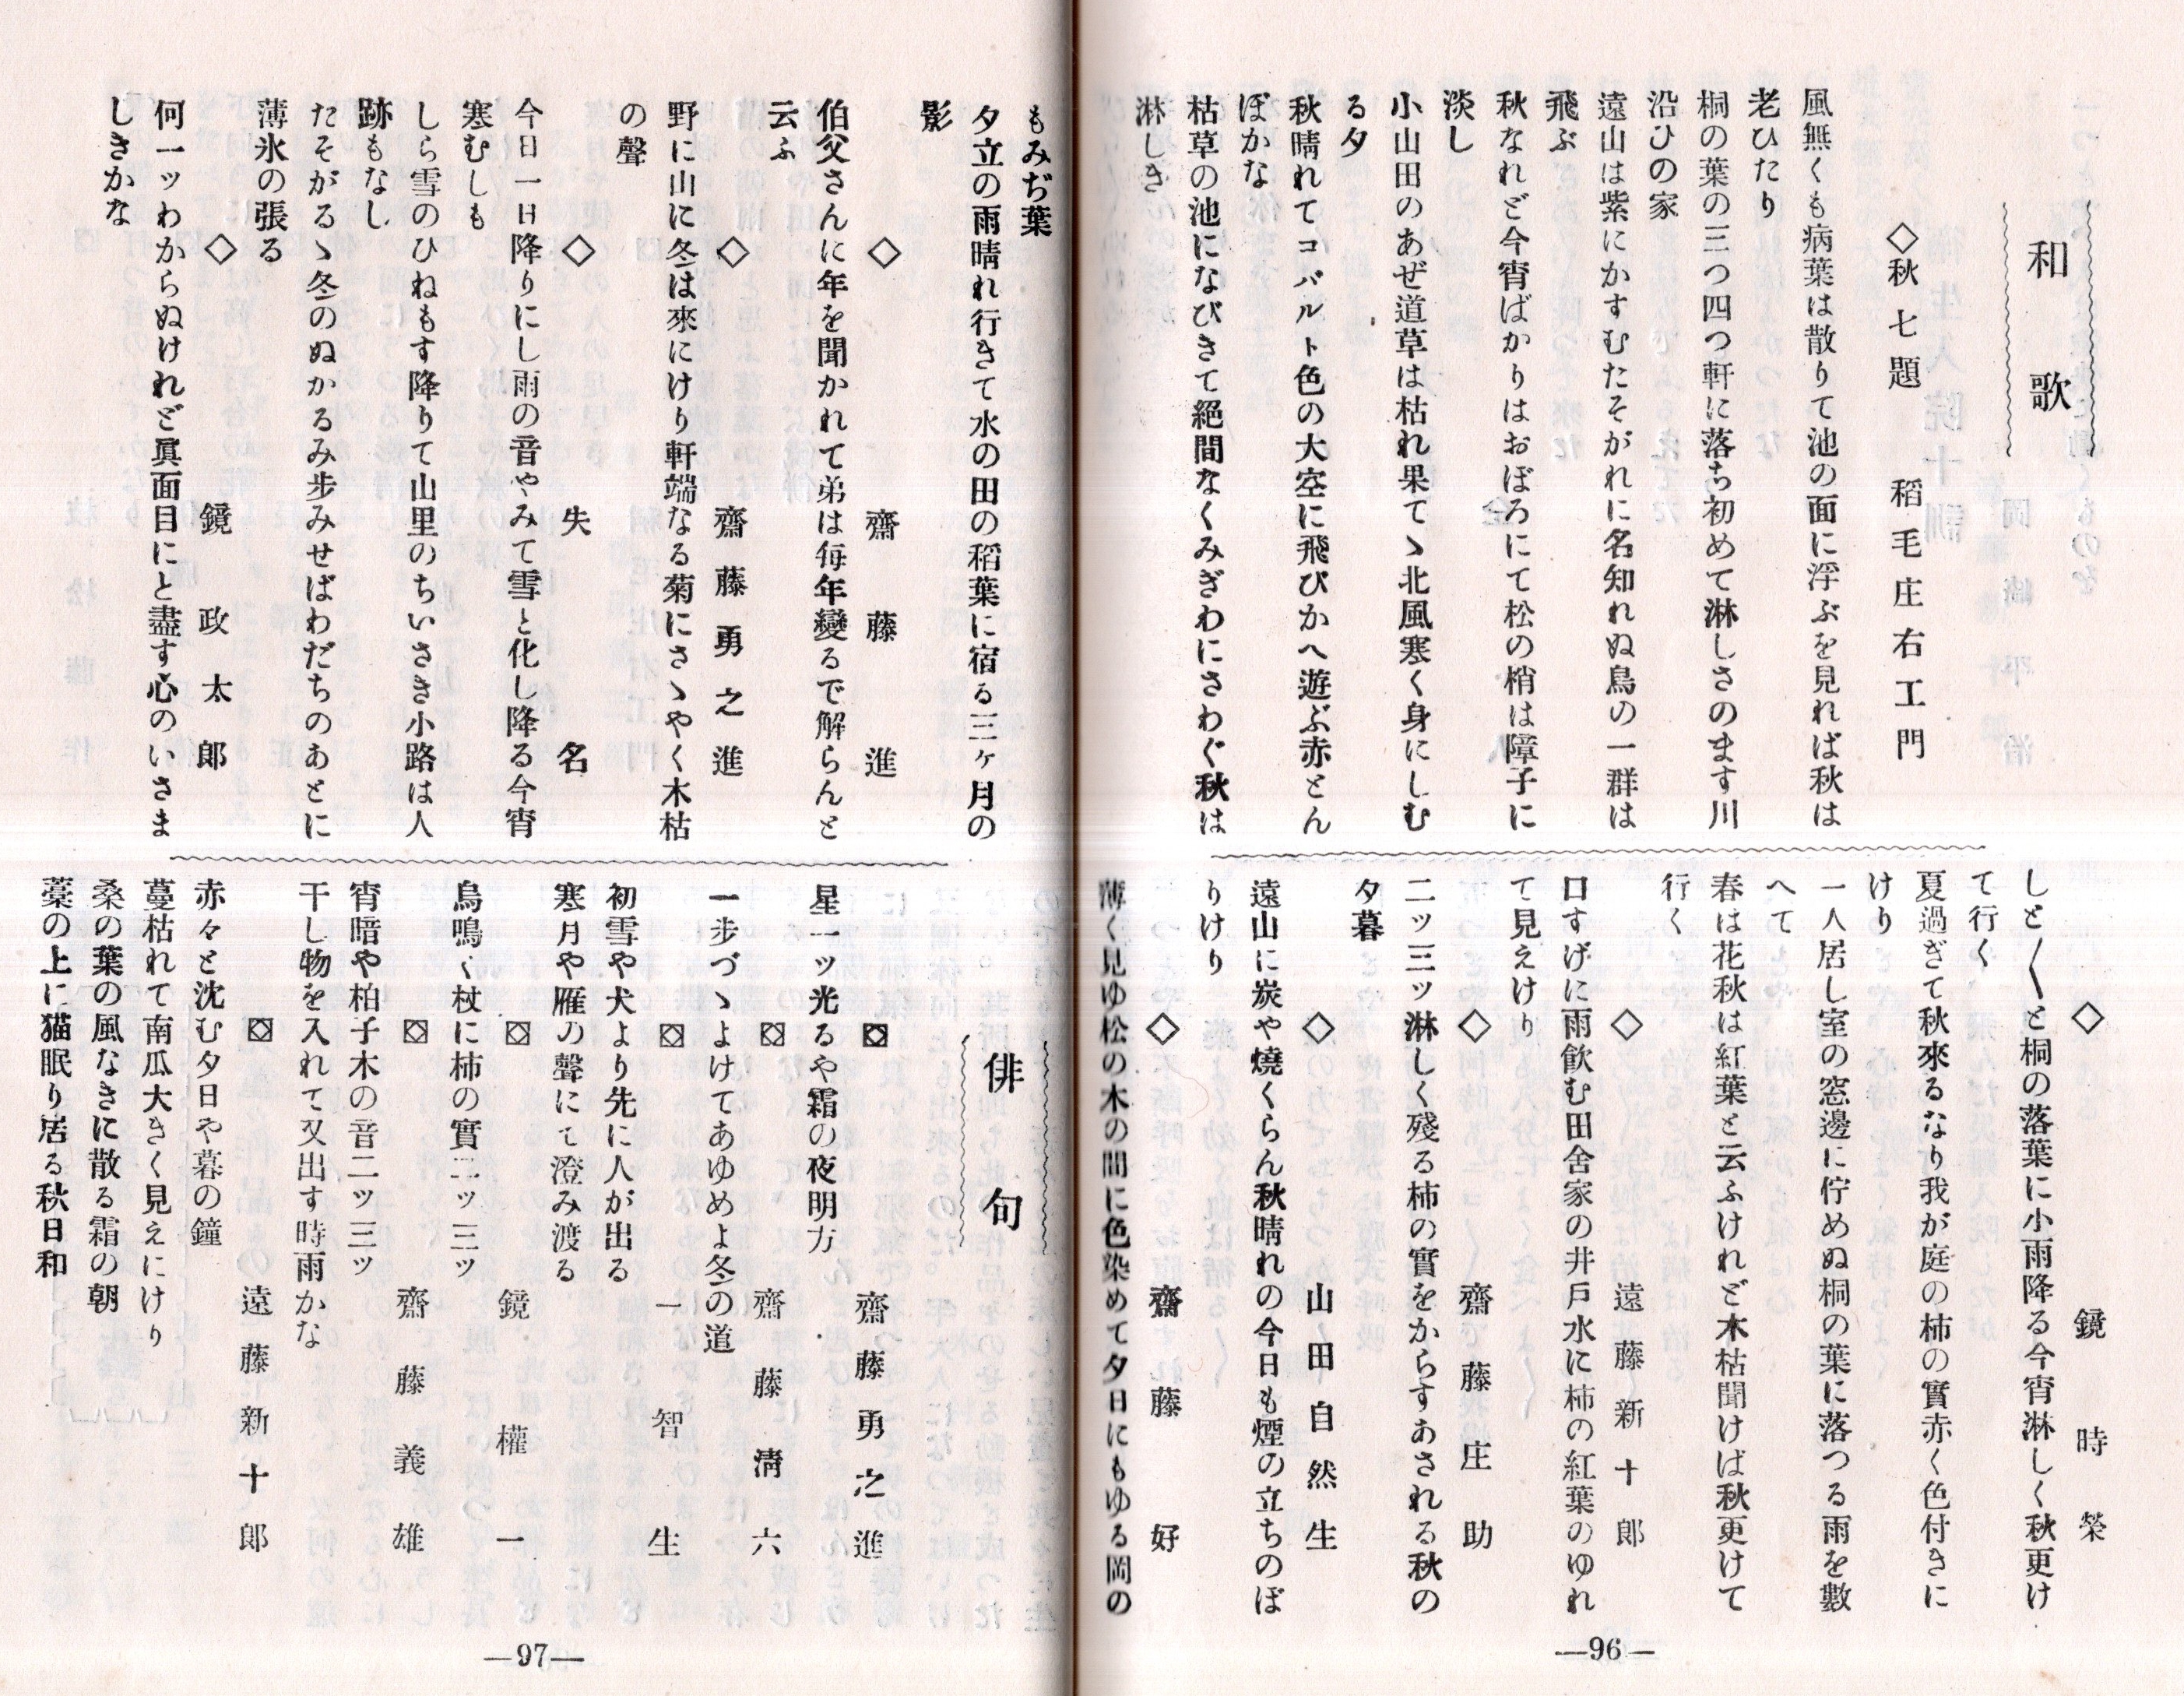 和歌
◇秋七題　稻毛庄右工門
風無くも病葉は散りて池の面に浮ぶを見れば秋は
老ひたり
桐の葉の三つ四つ軒に落ち初めて淋しさのます川
沿ひの家
遠山は紫にかすむたそがれに名知れぬ鳥の一群は
飛ぶ
秋なれど今宵ばかりはおぼろにて松の梢は障子に
淡し
小山田のあぜ道草は枯れ果てゝ北風寒く身にしむ
る夕
秋晴れてコバルト色の大空に飛びかへ遊ぶ赤とん
ぼかな
枯草の池になびきて絶間なくみぎわにさわぐ秋は
淋しき
◇　鏡時榮
しと〱と桐の落葉に小雨降る今宵淋しく秋更け
て行く
夏過ぎて秋來るなり我が庭の柿の實赤く色付きに
けり
一人居し室の窓邊に佇めぬ桐の葉に落つる雨を數
へて
春は花秋は紅葉と云ふけれど木枯聞けば秋更けて
行く
◇　遠藤新十郎
口すげに雨飮む田舍家の井戸水に柿の紅葉のゆれ
て見えけり
◇　齋藤庄助
二ッ三ッ淋しく殘る柿の實をからすあされる秋の
夕暮
◇　山田自然生
遠山に炭や燒くらん秋晴れの今日も煙の立ちのぼ
りけり
◇　齋藤好
薄く見ゆ松の木の間に色染めて夕日にもゆる岡の
—96—
もみぢ葉
夕立の雨晴れ行きて水の田の稻葉に宿る三ヶ月の
影
◇　齋藤進
伯父さんに年を聞かれて弟は毎年變るで解らんと
云ふ
◇　齋藤勇之進
野に山に冬は來にけり軒端なる菊にさゝやく木枯
の聲
◇　失名
今日一日降りにし雨の音やみて雪と化し降る今宵
寒むしも
しら雪のひねもす降りて山里のちいさき小路は人
跡もなし
たそがるゝ冬のぬかるみ步みせばわだちのあとに
薄氷の張る
◇　鏡政太郎
何一ッわからぬけれど眞面目にと盡す心のいさま
しきかな
俳句
齋藤勇之進
星一ッ光るや霜の夜明方
齋藤淸六
一步づゝよけてあゆめよ冬の道
一智生
初雪や犬より先に人が出る
寒月や雁の聲にて澄み渡る
鏡權一
烏鳴く杖に柿の實二ッ三ッ
齋藤義雄
宵暗や柏子木の音二ッ三ッ
干し物を入れて又出す時雨かな
遠藤新十郎
赤々と沈む夕日や暮の鐘
蔓枯れて南瓜大きく見えにけり
桑の葉の風なきに散る霜の朝
藁の上に猫眠り居る秋日和
—97—